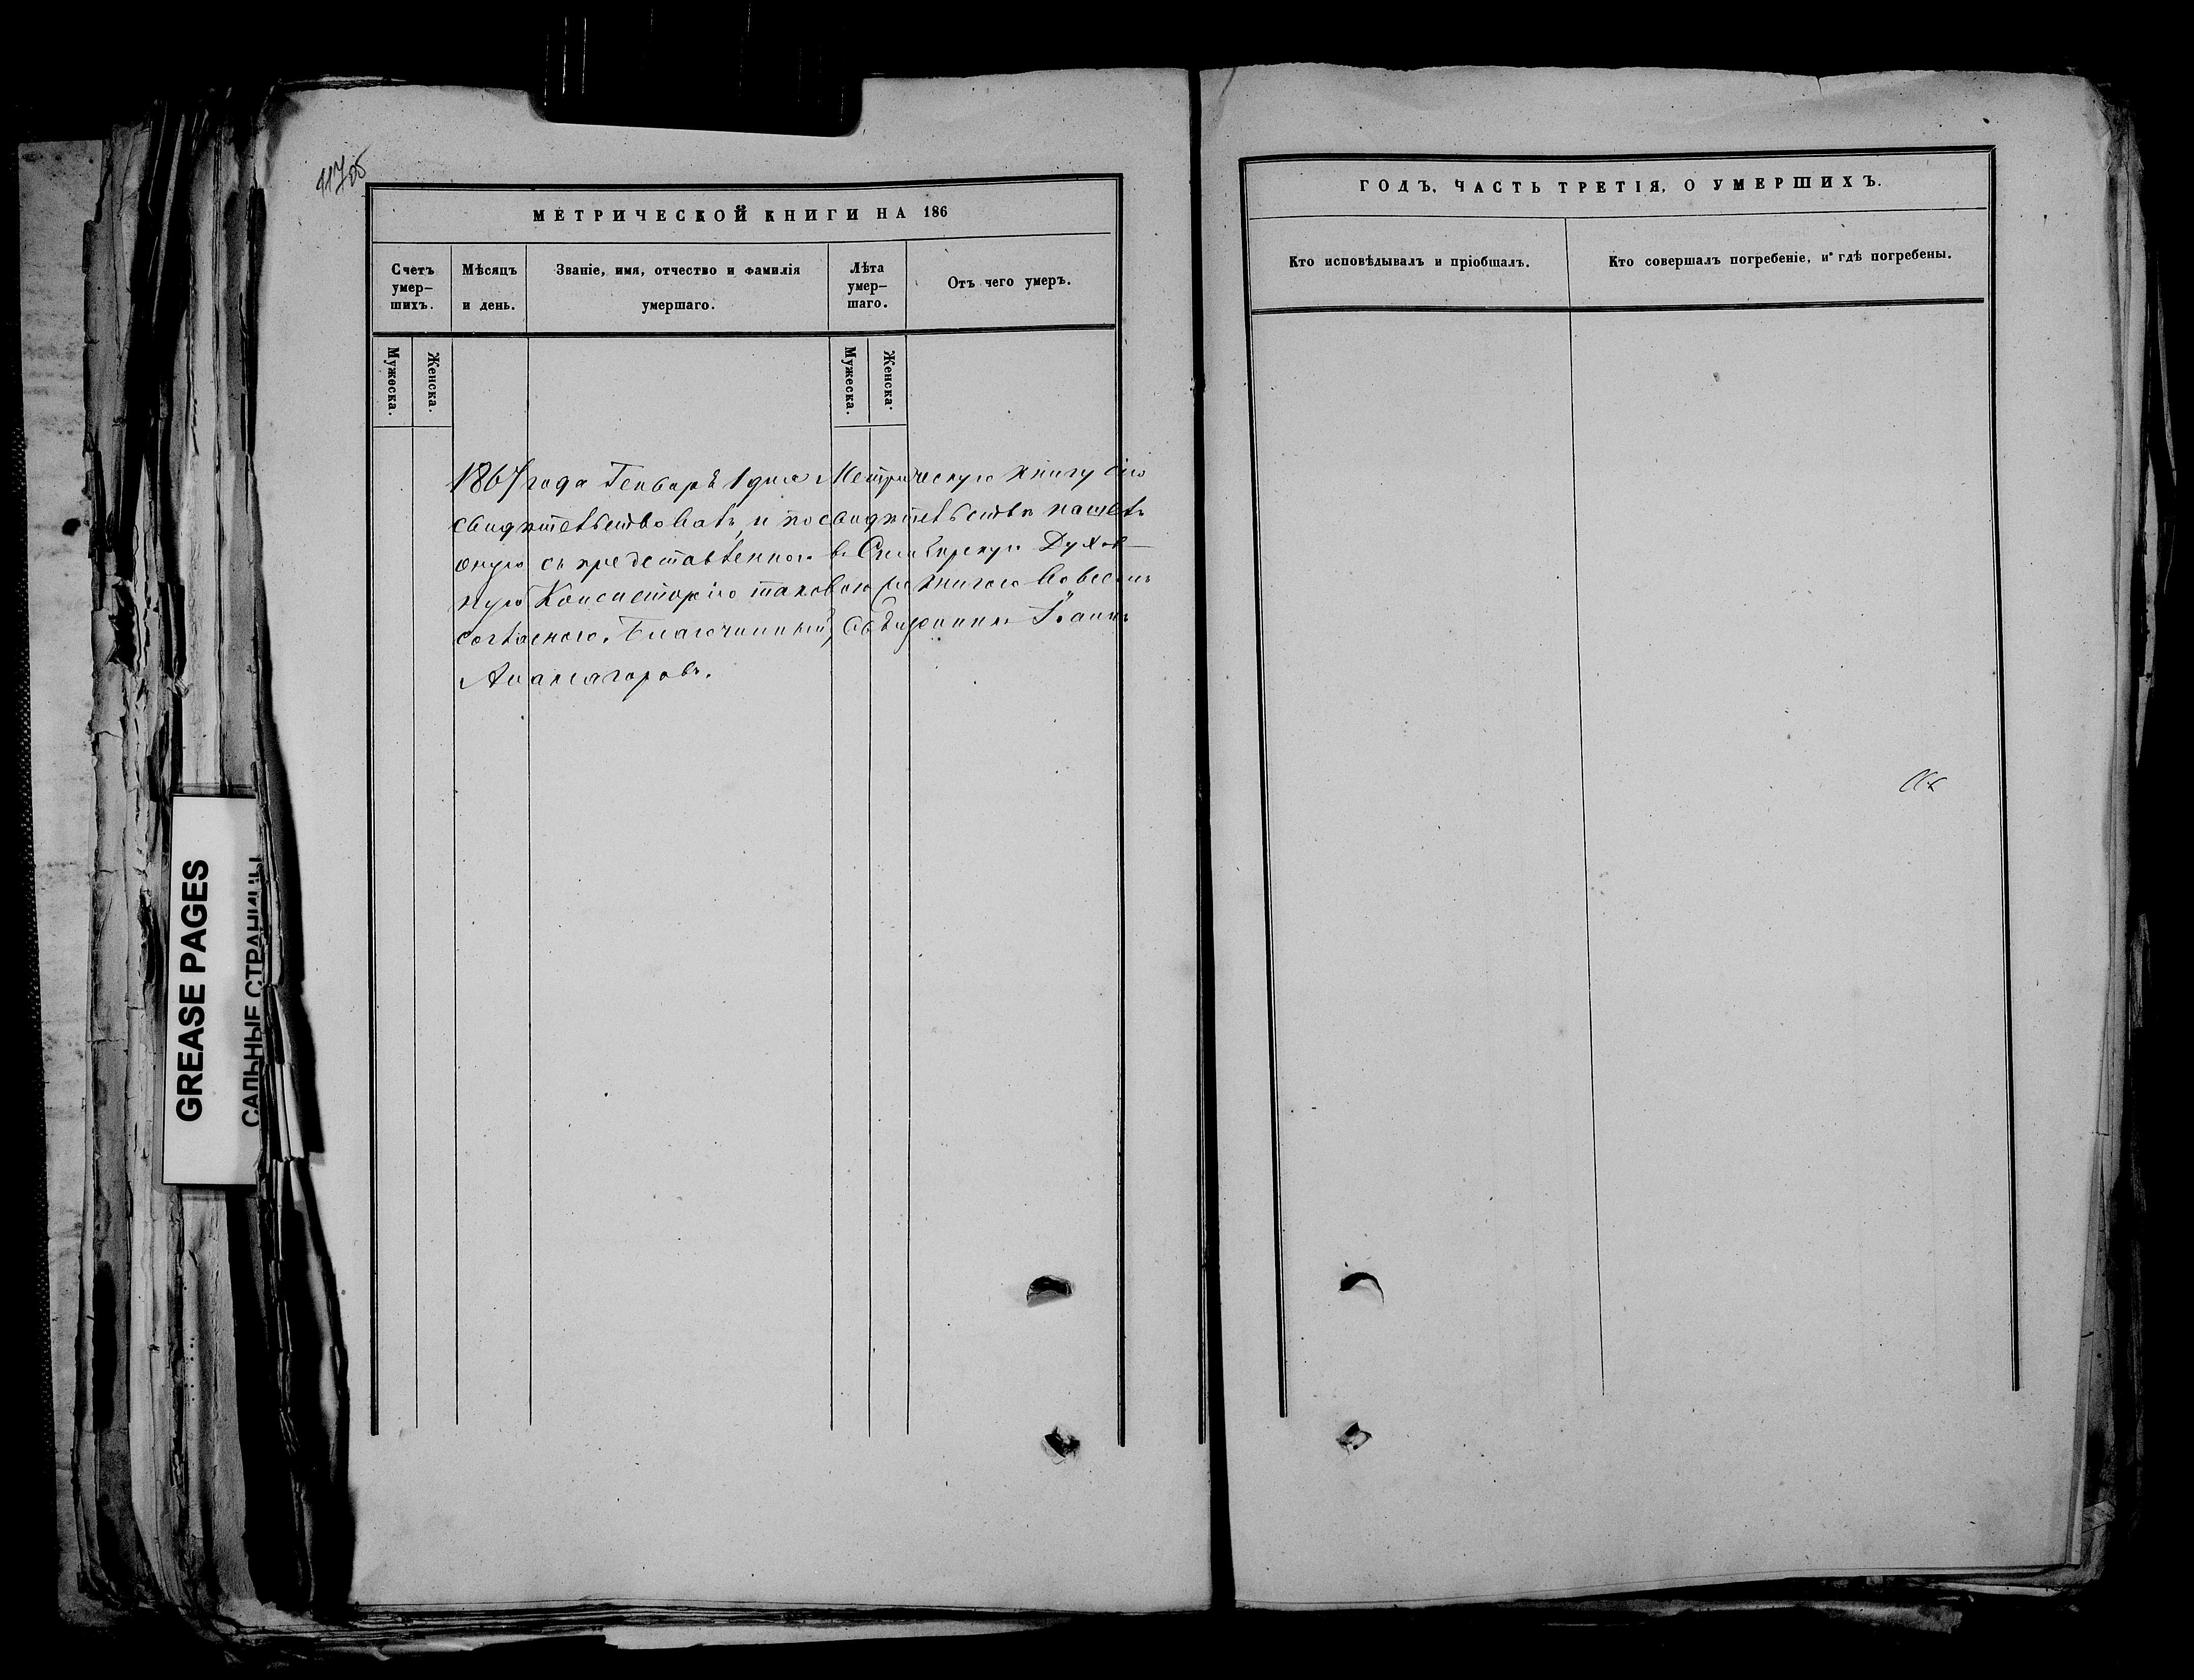 417об
МЕТРИЧЕСКОЙ КНИГИ НА 186
Счетъ умер-шихъ.
Мѣсяцъ и день.
Званіе, имя, отчество и фамилія умершаго.
Лѣта умер-шаго.
Отъ чего умеръ.
Мужеска.
Женска.
Мужеска.
Женска.
1867 года Генваря 1 дня Метрическую книгу сію
свидѣтельствовалъ, и по свидѣтельствѣ нашелъ
оную съ представленною въ Симбирскую Духов-
ную Консисторію таковою же книгою во всемъ
согласною. Благочинный, Священникъ Іоаннъ
Анаксагоровъ.
ГОДЪ, ЧАСТЬ ТРЕТІЯ, О УМЕРШИХЪ.
Кто исповѣдывалъ и пріобщалъ.
Кто совершалъ погребеніе, и гдѣ погребены.
GREASE PAGES
САЛЬНЫЕ СТРАНИЦЫ